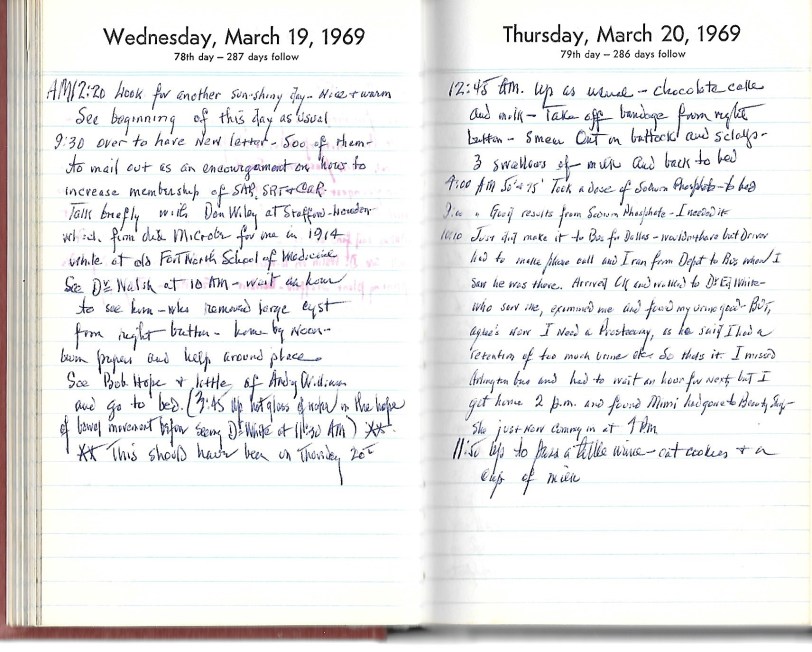 Wednesday, March 19, 1969
78th day — 287 days follow
AM 12:20 Look for another sun-shiny day - Nice & warm
See beginning of this day as usual
9:30 over to have New letter - 500 of them -
to mail out as an encouragement on how to
increase membership of SAR, SRT & CAR -
Talk briefly with Don Wiley at Stafford-
which firm did Microbs for me in 1914
while at old Fort Worth School of Medicine
See Dr Walsh at 10 AM - wait an hour
to see him - who removed large cyst
from right button - home by Noon -
burn papers and help around place
See Bob Hope & little of Andy Williams
and go to bed. (3:45 up hot glass of water in the hope
of bowel movement before seeing Dr White at 11:30 AM) **
** This should have been on Thursday 20th
Thursday, March 20, 1969
79th day — 286 days follow
12:45 AM. up as usual - chocolate cake
and milk - Take off bandage from right
button - smear Out on buttock and
3 swallows of milk and back to bed
4:00 AM Took a dose of Sodium Phosphate - to bed
" Good results from Sodium Phosphate - I needed it
10:10 Just did make it to Bus for Dallas - was there but Driver
had to make phone call and I ran from Depot to Bus when I
saw he was there. Arrived OK and walked to Dr Ed White -
who saw me, examined me and found my urine good - But,
agrees now I Need a, as he said I had a
retention of too much urine etc So thats it. I missed
Arlington bus and had to wait an hour for next, but I
got home 2 p.m. and found Mimi had gone to Beauty
she just now coming in at 4 PM
11:50 Up to pass a little urine - eat cookies & a
cup of milk